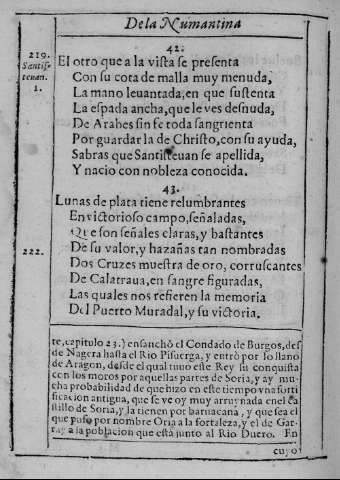 De la Numantina
42.
219.
Santiſ-
teuan.
1.
El otro que a la viſta ſe preſenta
Con ſu cota de malla muy menuda,
La mano leuantada, en que ſuſtenta
La eſpada ancha, que le ves deſnuda,
De Arabes ſin fe toda ſangrienta
Por guardar la de Chriſto, con ſu ayuda,
Sabras que Santiſteuan ſe apellida,
Y nacio con nobleza conocida.
43.
Lunas de plata tiene relumbrantes
En victorioſo campo, ſeñaladas,
Que ſon ſeñales claras, y baſtantes
222.
De ſu valor, y hazañas tan nombradas
Dos Cruzes mueſtra de oro, corruſcantes
De Calatraua, en ſangre figuradas,
Las quales nos refieren la memoria
Del Puerto Muradal, y ſu victoria.
te, capitulo 23.) enſanchò el Condado de Burgos, deſ
de Nagera haſta el Rio Piſuerga, y entrò por lo llano
de Aragon, deſde el qual tuuo eſte Rey ſu conquiſta
con los moros por aquellas partes de Soria, y ay mu-
cha probabilidad de que hizo en eſte tiempo vna forti
ficacion antigua, que ſe ve oy muy arruynada en el ca
ſtillo de Soria, y la tienen por barnacana, y que ſea el
que puſo por nombre Oria a la fortaleza, y el de Gar-
ray a la poblacion que eſtà junto al Rio Duero. En
cuyo